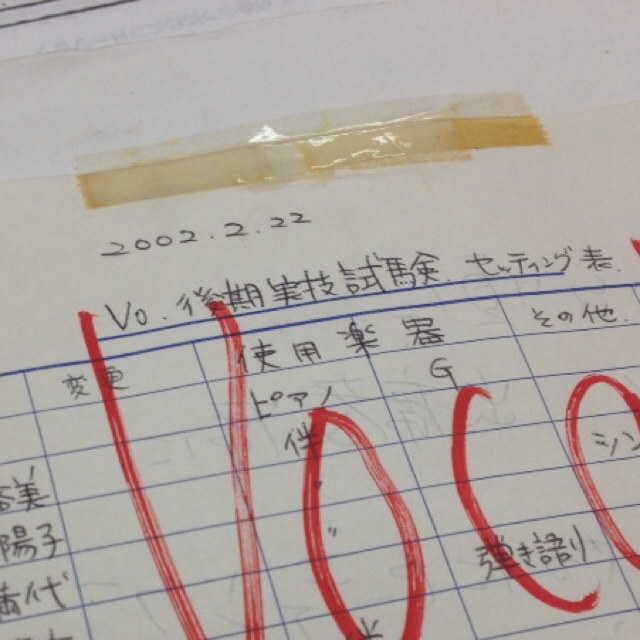 2002.2.22
Vo. 後期実技試験 セッティング表
使用楽器 その他
変更 ピアノ G
伴
〃 シン
美
陽子 弾き語り
代
VOCO